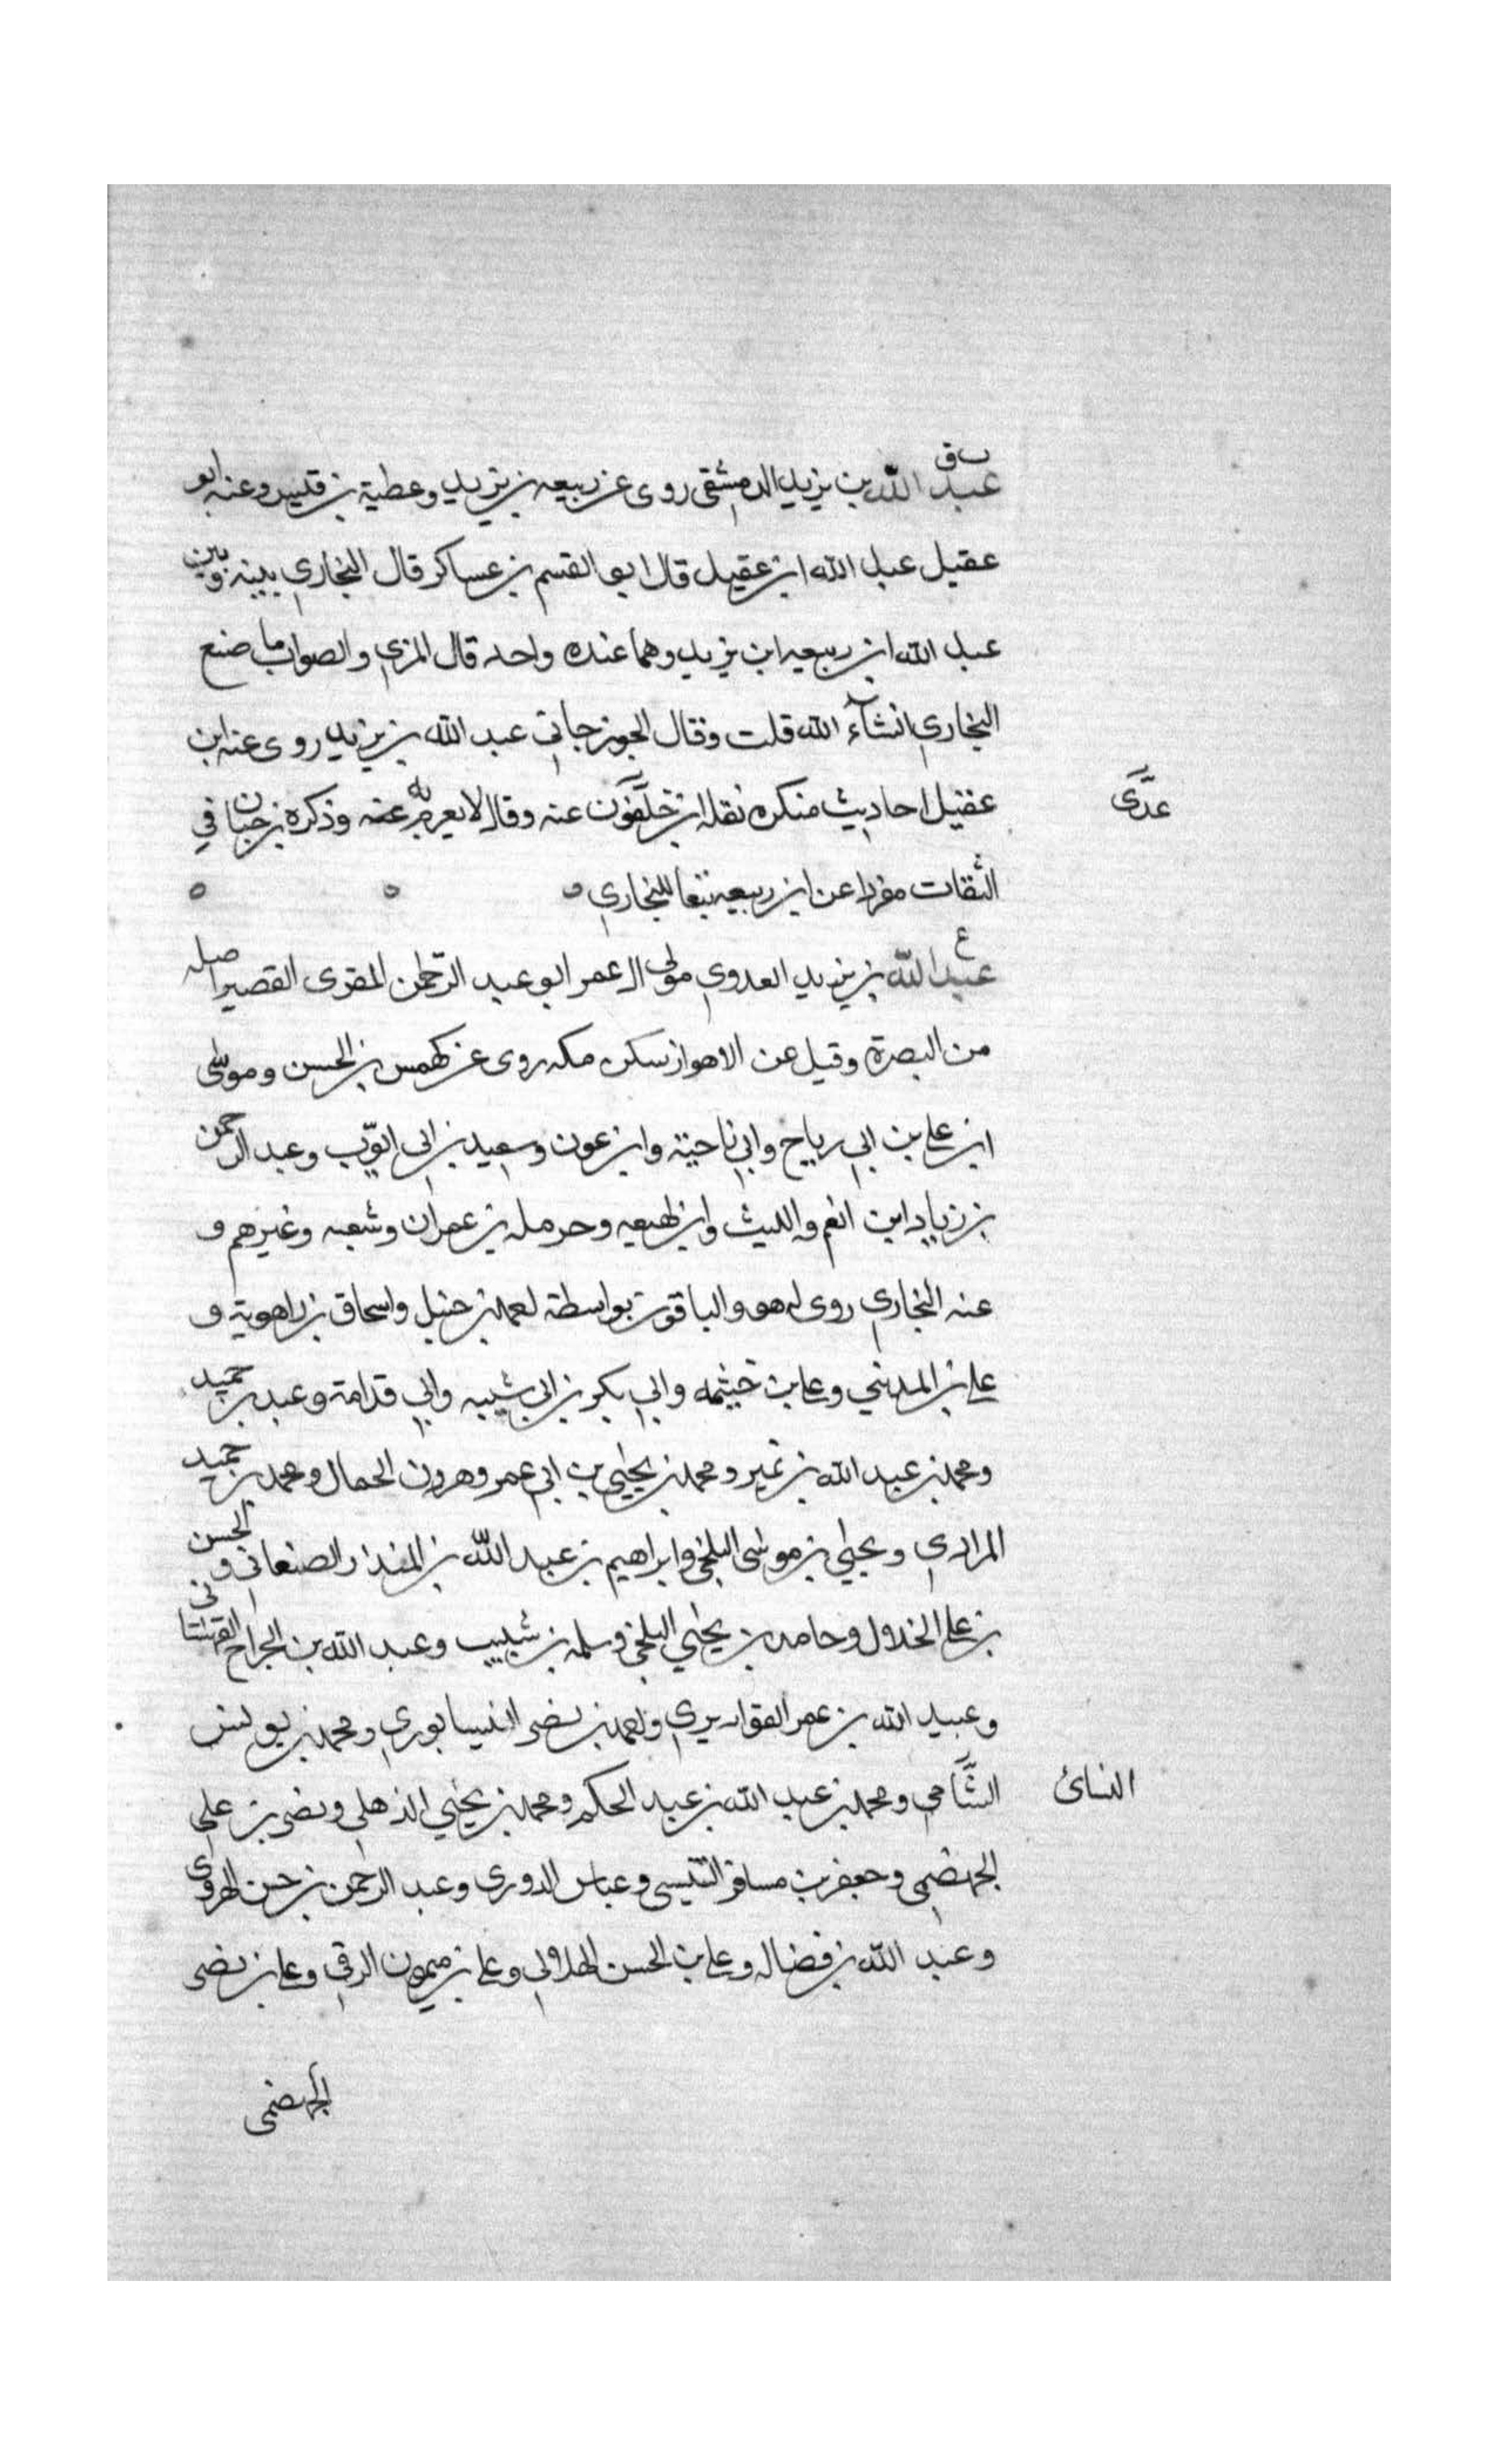 ت ق
عبد الله بن يزيد الدمشقي روى عن ربيعه بن يزيد وعطية بن قيس وعنه ابو
عقيل عبد الله ابن عقيل قال ابو القسم بن عساكر قال البخاري بينه وبين
عبد الله ابن ربيعه ابن يزيد وهما عنده واحد قال المزي والصواب ما صنع
البخاري انشآء الله قلت وقال الجوزجاني عبد الله بن يزيد روى عنه ابن
عقيل احاديث منكره نقله ابن خلفون عنه وقال لا يعرفه وذكره بن حبان في
عدَّى
الثقات مفردا عن ابن ربيعه تبعا للبخاري
ع
عبد الله بن يزيد العدوي مولى ال عمر ابو عبد الرحمن المقرى القصير اصله
من البصرة وقيل من الاهواز سكن مكه روى عن كهمس بن الحسن وموسى
ابن علي بن ابي رياح وابي ناحية وابن عون وسعيد بن ابي ايوب وعبد الرحمن
بن زياد ابن انعم والليث وابن لهيعه وحرمله بن عمران وشعبه وغيرهم و
عنه البخاري روى له هو والباقون بواسطة احمد بن حنبل واسحاق بن راهوية و
علي بن المديني وعلي بن خيثمه وابي بكر بن ابي شيبه وابي قدامة وعبد بن حميد
ومحمد بن عبد الله بن نمير ومحمد بن يحيى بن ابي عمر وهرون الحمال ومحمد بن حميد
المرادي ويحيى بن موسى البلخي وابراهيم بن عبد الله بن المنذار الصنعاني والحسن
بن علي الخلال وحامد بن يحيى البلخي وسلمه بن شبيب وعبد الله بن الجراح القهستاني
وعبيد الله بن عمر القواريري واحمد بن نصر النيسابوري ومحمد بن يونس
الشَّامي ومحمد بن عبد الله بن عبد الحكم ومحمد بن يحيى الذهلي ونصر بن علي
النسائ
الجهضمي وجعفر بن مسافر التنيسي وعباس الدوري وعبد الرحمن بن حسن الهروي
وعبد الله بن فضاله وعلي بن الحسن الهلالي وعلي بن ميمون الرقي وعلي بن نصر
الجهضمي